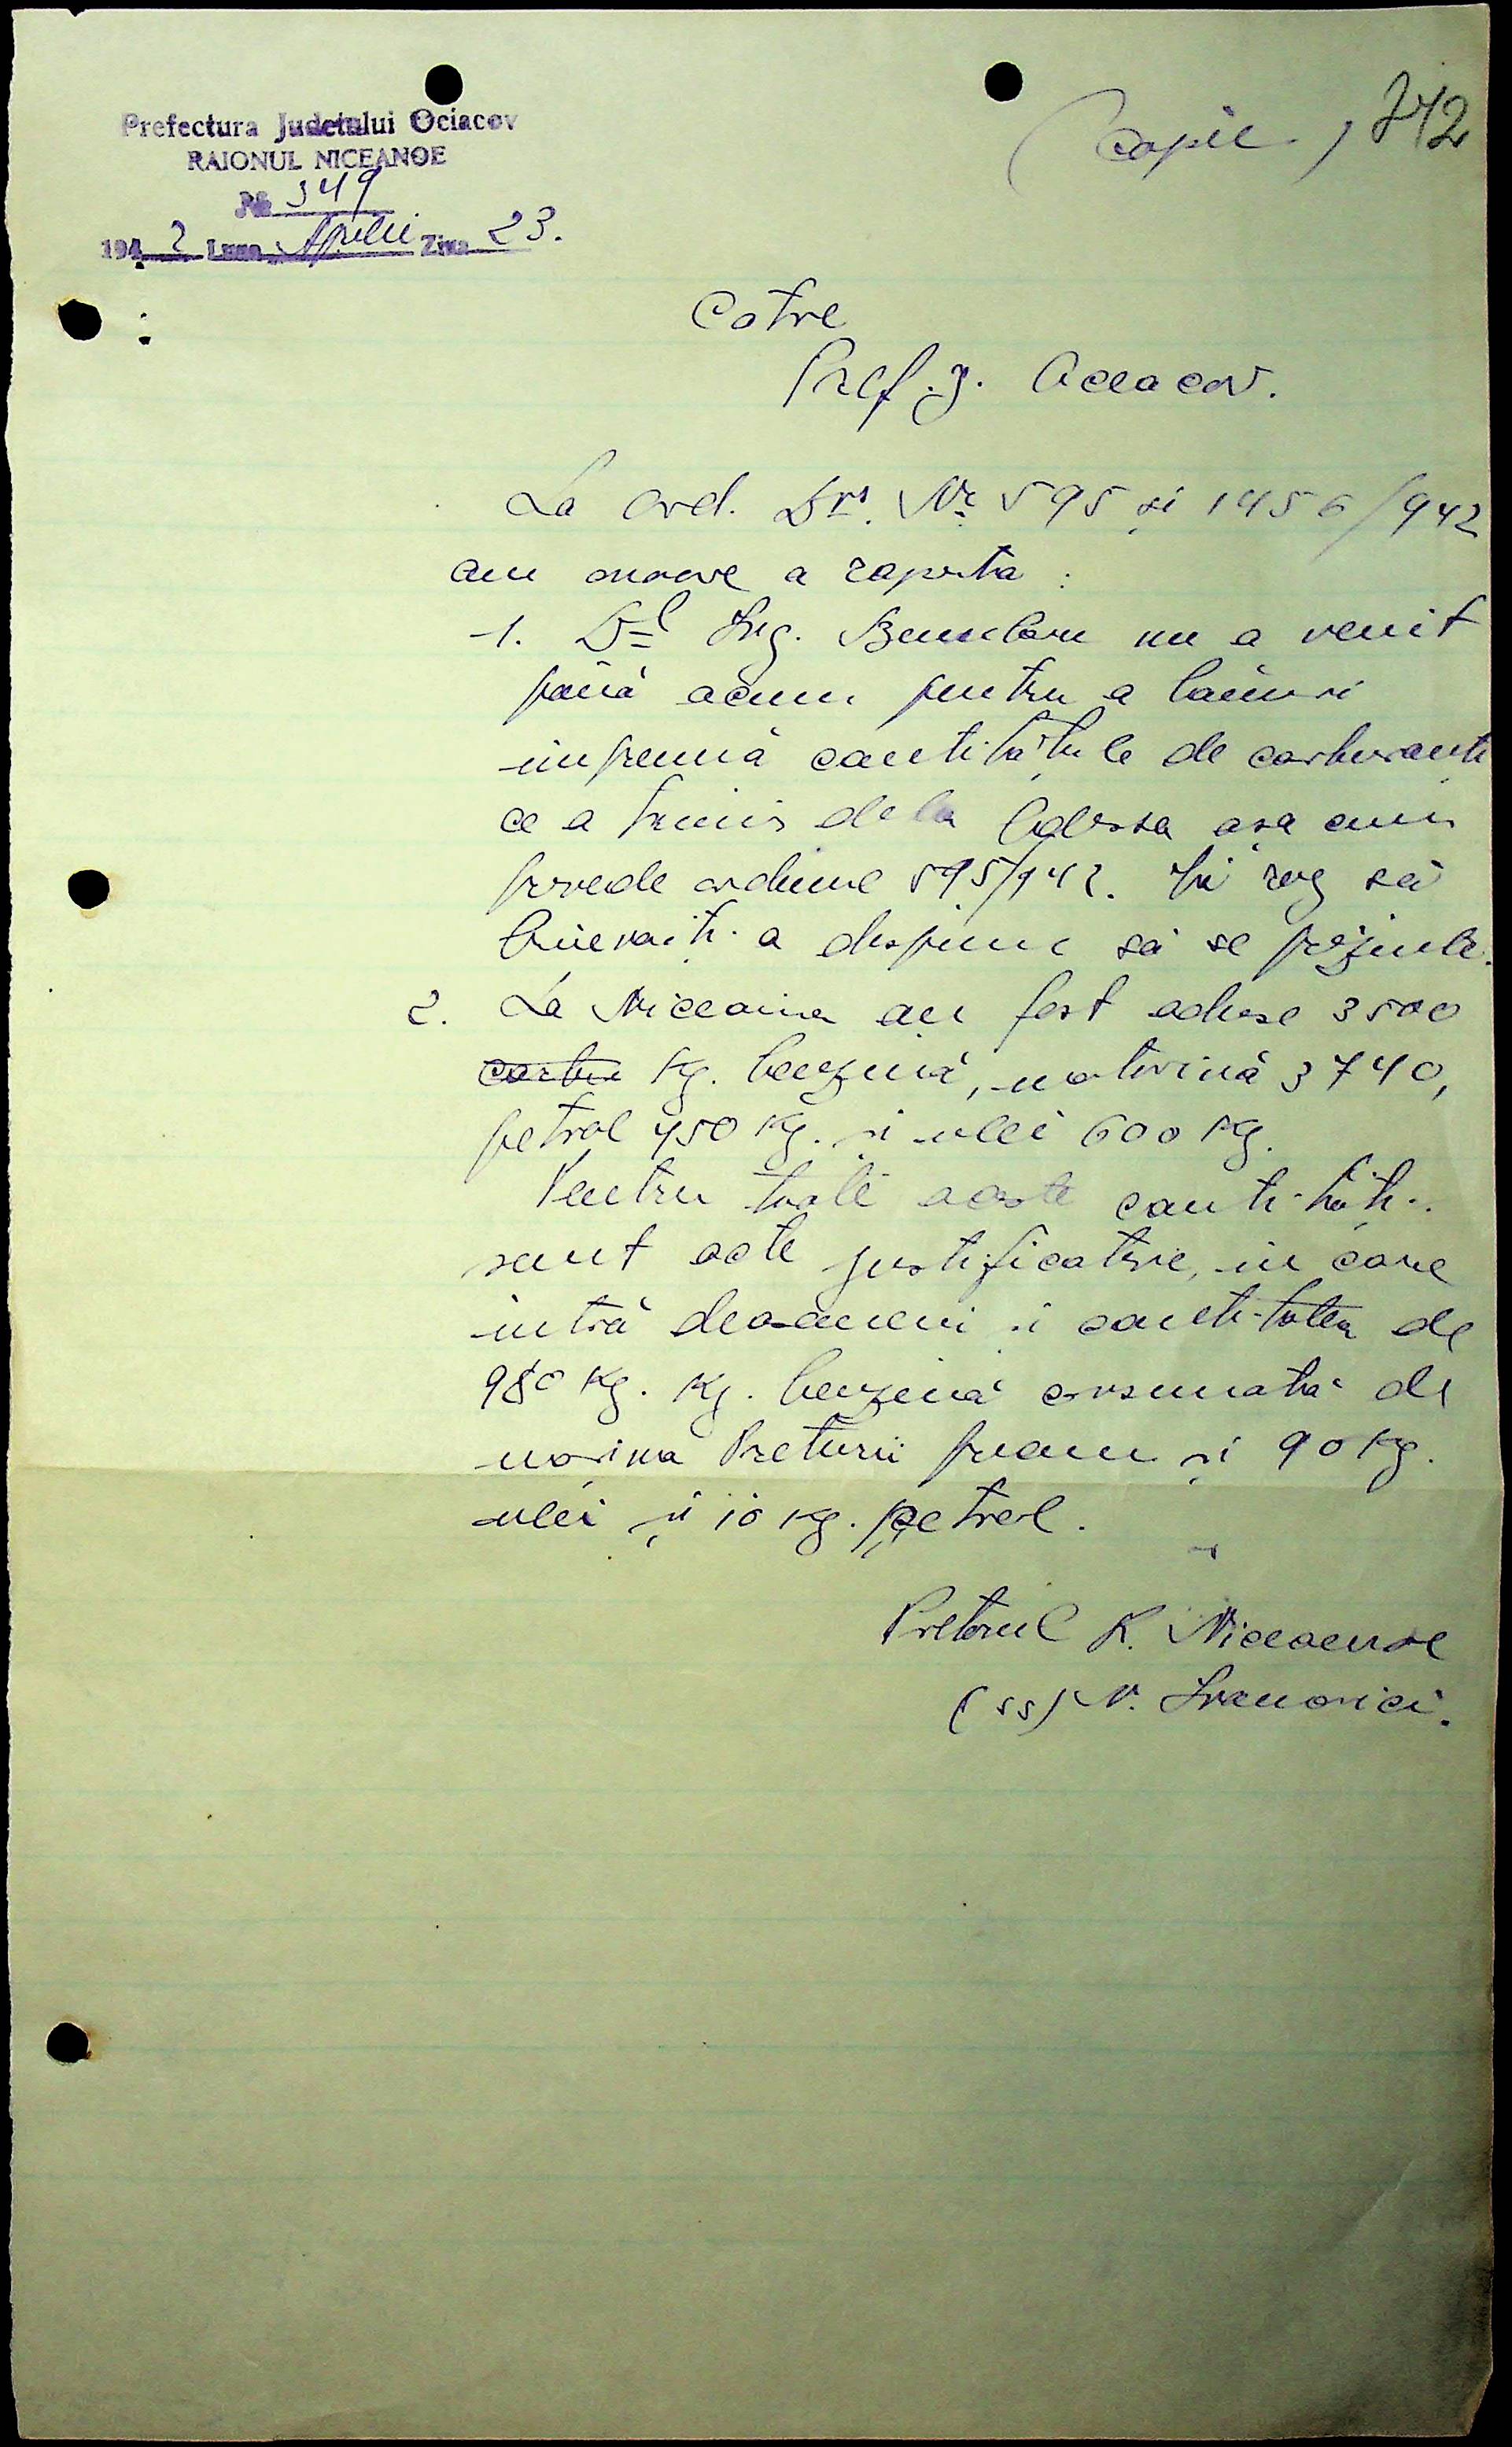 Prefectura Judetului Ociacov
RAIONUL NICEANOE
№ 349
1942 Luna Aprilie Ziua 23.
(Copie) 742
Catre
Pref. J. Oceacov.
La ord. Dvs. Nr 595 și 1456/942
am onoare a raporta :
1. Dl Ing. nu a venit
până acum pentru a lămuri
împreună cantitățile de carburanti
ce a trimis dela Odessa așa cum
prevede ordinul 595/942. Vă rog să
binevoiți a dispune să se prezinte.
2. La Niceaina au fost aduse 3500
carbu Kg. benzină, motorină 3740,
petrol 450 Kg. și ulei 600 Kg.
Pentru toate aceste cantități
sunt acte justificative, in care
intră deasemeni și cantitatea de
980 Kg. Kg. benzină consumată de
mașina Preturii precum și 90 Kg.
ulei și 10 Kg. petrol.
Pretorul R. Niceaenoe
(ss) V.